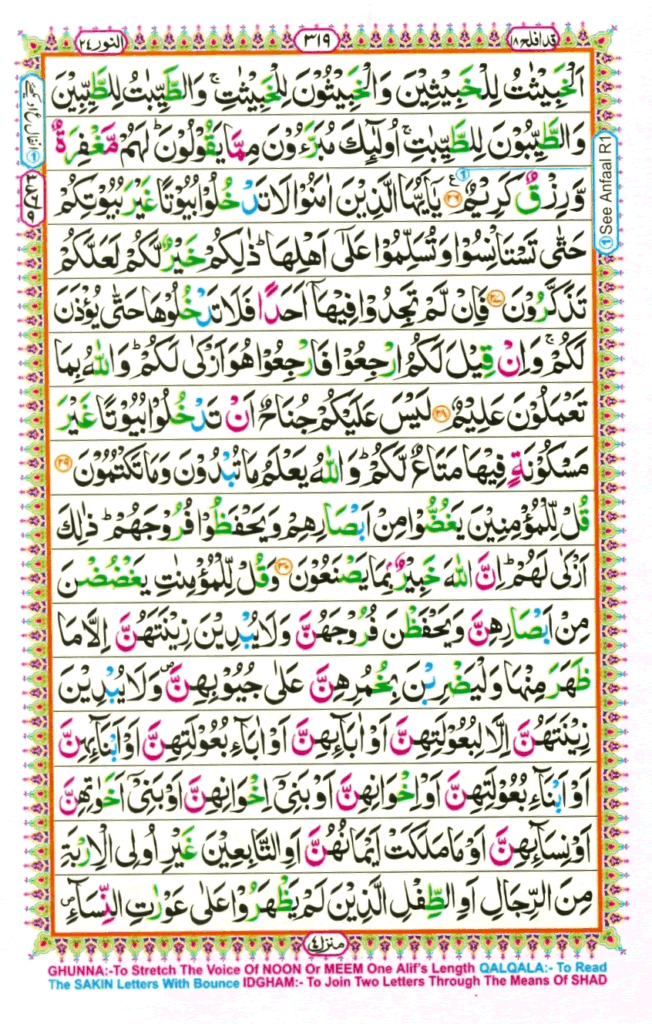 قد افلح ١٨
٣١٩
النور ٢٤
اَلْخَبِيْثٰتُ لِلْخَبِيْثِيْنَ وَالْخَبِيْثُوْنَ لِلْخَبِيْثٰتِ ۚ وَالطَّيِّبٰتُ لِلطَّيِّبِيْنَ
وَالطَّيِّبُوْنَ لِلطَّيِّبٰتِ ۚ اُولٰٓئِكَ مُبَرَّءُوْنَ مِمَّا يَقُوْلُوْنَ ؕ لَهُمْ مَّغْفِرَةٌ
وَّرِزْقٌ كَرِيْمٌ ﴿۲۶﴾ يٰۤاَيُّهَا الَّذِيْنَ اٰمَنُوْا لَا تَدْخُلُوْا بُيُوْتًا غَيْرَ بُيُوْتِكُمْ
حَتّٰى تَسْتَاْنِسُوْا وَتُسَلِّمُوْا عَلٰٓى اَهْلِهَا ؕ ذٰلِكُمْ خَيْرٌ لَّكُمْ لَعَلَّكُمْ
تَذَكَّرُوْنَ ﴿۲۷﴾ فَاِنْ لَّمْ تَجِدُوْا فِيْهَاۤ اَحَدًا فَلَا تَدْخُلُوْهَا حَتّٰى يُؤْذَنَ
لَكُمْ ۚ وَاِنْ قِيْلَ لَكُمُ ارْجِعُوْا فَارْجِعُوْا هُوَ اَزْكٰى لَكُمْ ؕ وَاللّٰهُ بِمَا
تَعْمَلُوْنَ عَلِيْمٌ ﴿۲۸﴾ لَيْسَ عَلَيْكُمْ جُنَاحٌ اَنْ تَدْخُلُوْا بُيُوْتًا غَيْرَ
مَسْكُوْنَةٍ فِيْهَا مَتَاعٌ لَّكُمْ ؕ وَاللّٰهُ يَعْلَمُ مَا تُبْدُوْنَ وَمَا تَكْتُمُوْنَ ﴿۲۹﴾
قُلْ لِّلْمُؤْمِنِيْنَ يَغُضُّوْا مِنْ اَبْصَارِهِمْ وَيَحْفَظُوْا فُرُوْجَهُمْ ؕ ذٰلِكَ
اَزْكٰى لَهُمْ ؕ اِنَّ اللّٰهَ خَبِيْرٌۢ بِمَا يَصْنَعُوْنَ ﴿۳۰﴾ وَقُلْ لِّلْمُؤْمِنٰتِ يَغْضُضْنَ
مِنْ اَبْصَارِهِنَّ وَيَحْفَظْنَ فُرُوْجَهُنَّ وَلَا يُبْدِيْنَ زِيْنَتَهُنَّ اِلَّا مَا
ظَهَرَ مِنْهَا وَلْيَضْرِبْنَ بِخُمُرِهِنَّ عَلٰى جُيُوْبِهِنَّ ۪ وَلَا يُبْدِيْنَ
زِيْنَتَهُنَّ اِلَّا لِبُعُوْلَتِهِنَّ اَوْ اٰبَآئِهِنَّ اَوْ اٰبَآءِ بُعُوْلَتِهِنَّ اَوْ اَبْنَآئِهِنَّ
اَوْ اَبْنَآءِ بُعُوْلَتِهِنَّ اَوْ اِخْوَانِهِنَّ اَوْ بَنِيْۤ اِخْوَانِهِنَّ اَوْ بَنِيْۤ اَخَوٰتِهِنَّ
اَوْ نِسَآئِهِنَّ اَوْ مَا مَلَكَتْ اَيْمَانُهُنَّ اَوِ التّٰبِعِيْنَ غَيْرِ اُولِى الْاِرْبَةِ
مِنَ الرِّجَالِ اَوِ الطِّفْلِ الَّذِيْنَ لَمْ يَظْهَرُوْا عَلٰى عَوْرٰتِ النِّسَآءِ ۪
See Anfaal R1
منزل ٤
GHUNNA:-To Stretch The Voice Of NOON Or MEEM One Alif's Length QALQALA:- To Read
The SAKIN Letters With Bounce IDGHAM:- To Join Two Letters Through The Means Of SHAD